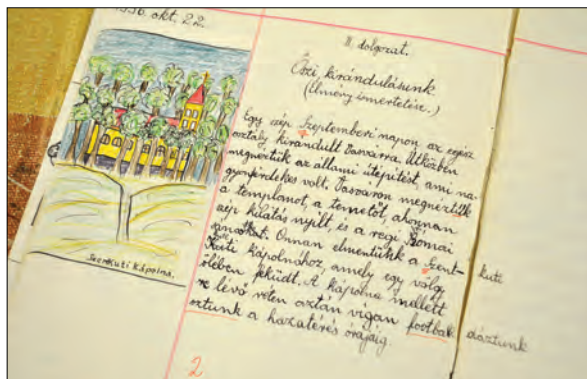 1936. okt. 22.
II. dolgozat.
Őszi kirándulásunk
(Élmény ismertetése.)
Egy szép Szeptemberi napon az egész
osztály kirándult Vasvárra. Útközben
megnéztük az állami útépítést, ami na-
gyon érdekes volt. Vasváron megnéztük
a templomot, a temetőt, ahonnan
szép kilátás nyílt, és a régi Római
sáncokat. Onnan elmentünk a Szent-kuti
Kuti kápolnához, amely egy völgy
ölében feküdt. A kápolna mellett
levő réten aztán vígan footbak dóztunk
oztunk a hazatérés órájáig.
2
Szentkuti Kápolna.